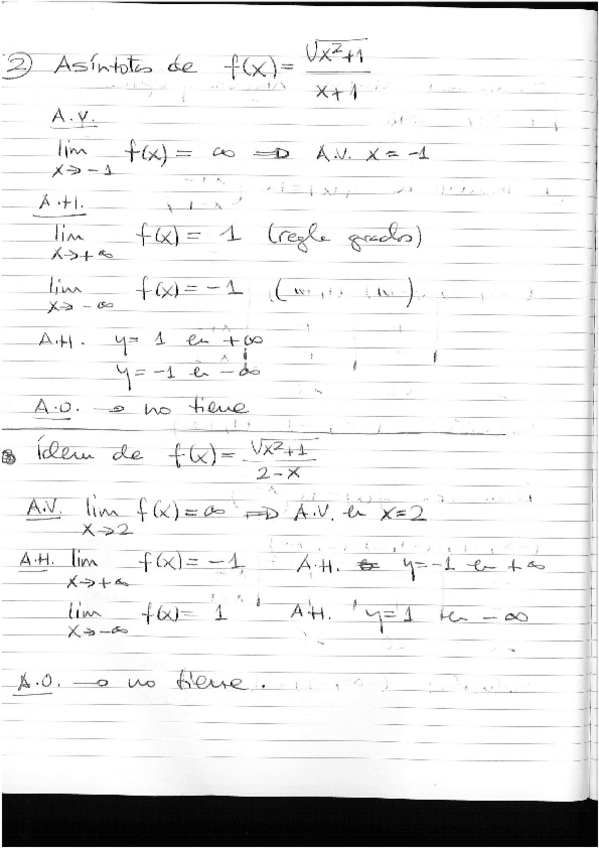 2) Asíntotas de f(x) = √x²+1 / x+1
A.V.
lim x→-1 f(x) = ∞ ⇒ A.V. x = -1
A.H.
lim x→+∞ f(x) = 1 (regla grados)
lim x→-∞ f(x) = -1 ( )
A.H. y = 1 en +∞
y = -1 en -∞
A.O. → no tiene
Ídem de f(x) = √x²+1 / 2-x
A.V. lim x→2 f(x) = ∞ ⇒ A.V. en x=2
A.H. lim x→+∞ f(x) = -1 A.H. y=-1 en +∞
lim x→-∞ f(x) = 1 A.H. y=1 en -∞
A.O. → no tiene.